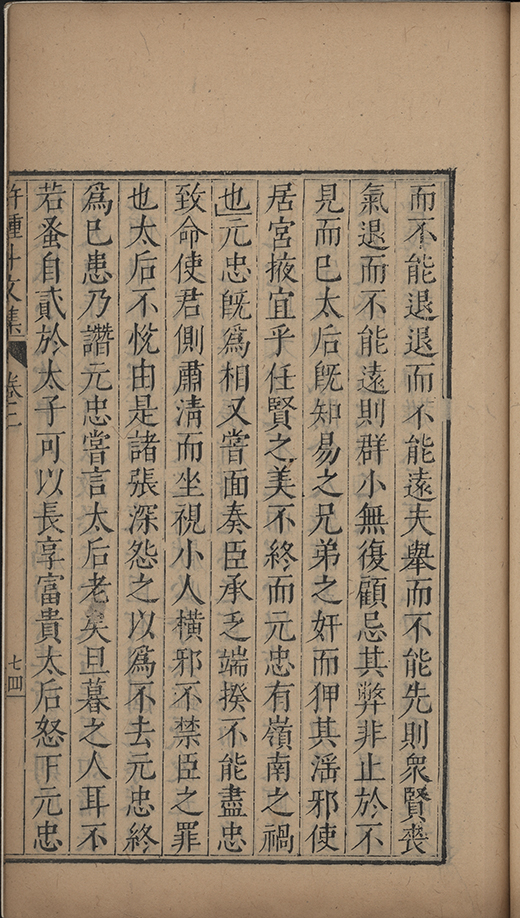 而不能退退而不能遠夫舉而不能先則衆賢喪
氣退而不能遠則群小無復顧忌其弊非止於不
見而已太后旣知易之兄弟之奸而狎其滛邪使
居宮掖宜乎任賢之美不終而元忠有嶺南之禍
也元忠旣爲相又嘗面奏臣承乏端揆不能盡忠
致命使君側肅清而坐視小人橫邪不禁臣之罪
也太后不悅由是諸張深怨之以爲不去元忠終
爲已患乃譖元忠嘗言太后老矣旦暮之人耳不
若蚤自貳於太子可以長享富貴太后怒下元忠
許鍾斗文集 卷三 七四